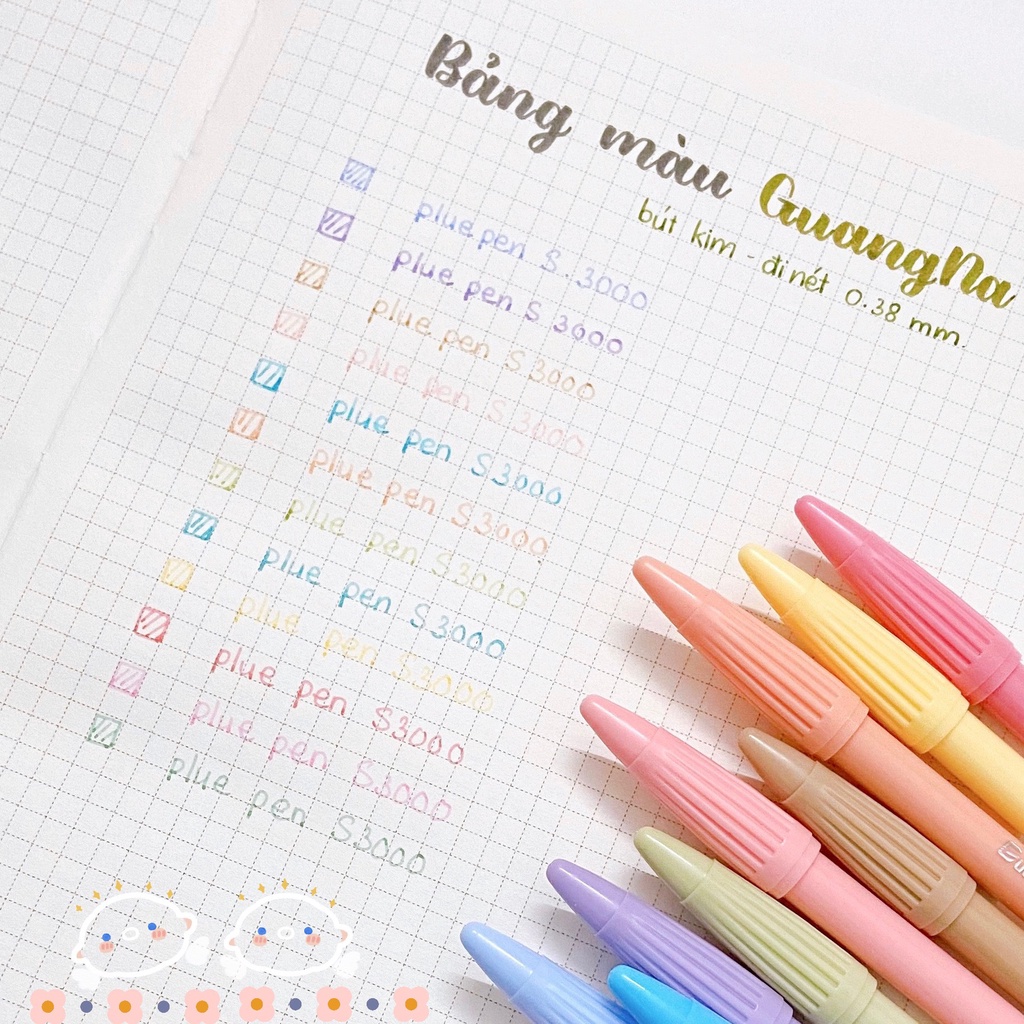 Bảng màu GuangNa
bút kim - đi nét 0.38 mm.
plue pen S.3000
plue pen S 3000
plue pen S3000
plue pen S3000
plue pen S3000
plue pen S3000
plue pen S3000
plue pen S3000
plue pen S3000
plue pen S3000
plue pen S3000
plue pen S3000